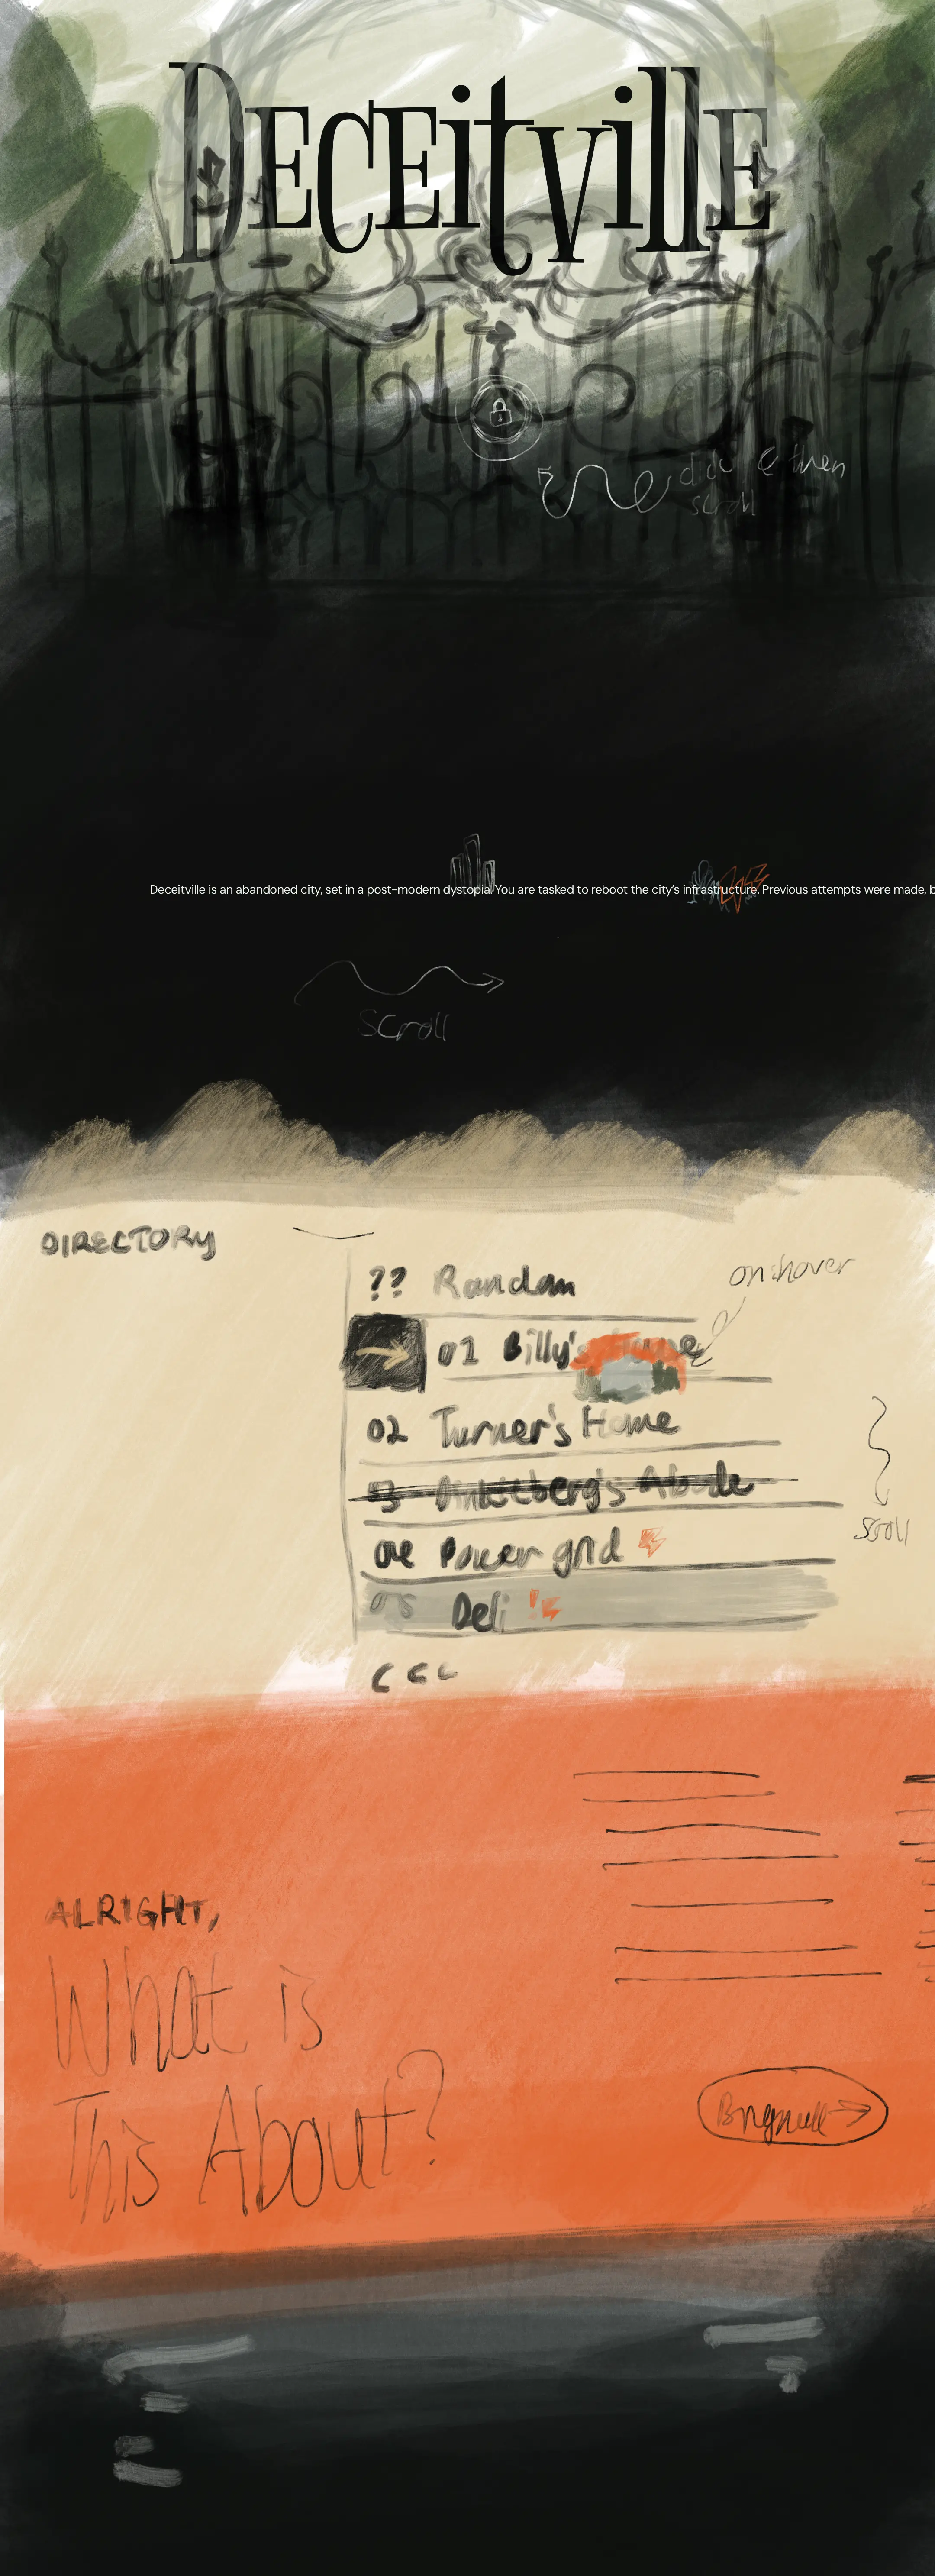 DECEitvillE
click & then
scroll
Deceitville is an abandoned city, set in a post-modern dystopia. You are tasked to reboot the city's infrastructure. Previous attempts were made, b
Scroll
DIRECTORY
on hover
?? Random
01 Billy's
02 Turner's Home
Abode
Power grid
scroll
05 Deli !
ALRIGHT,
What is
This About?